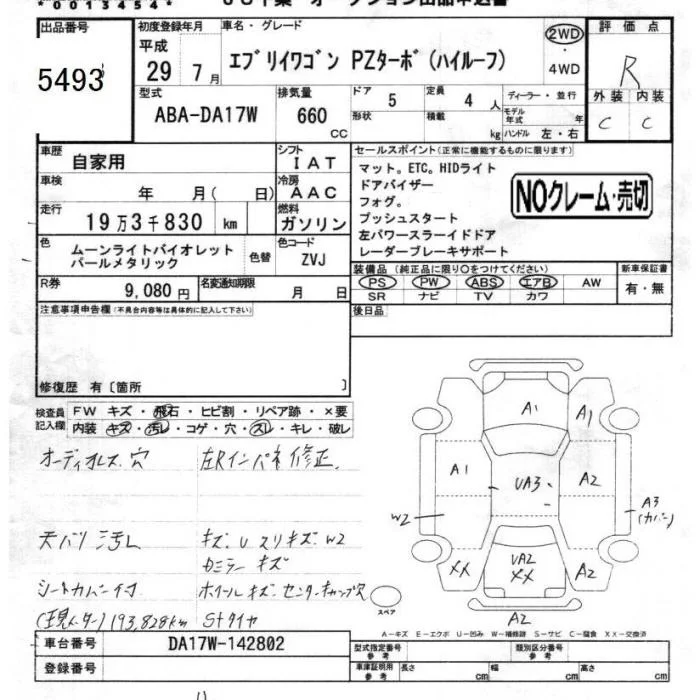 *00134 54*
出品番号 初度登録年月 車名・グレード 2WD 評価点
5493 平成 29 7月 エブリイワゴン PZターボ(ハイルーフ) ・ 4WD R
型式 排気量 ドア 5 定員 4 人 ディーラー・並行 外装 内装
ABA-DA17W 660 CC 形状 積載 kg モデル年式 年 C C
ハンドル 左・右
車歴 自家用 シフト IAT セールスポイント(正常に機能するものに限ります)
車検 年 月( 日) 冷房 AAC マット。ETC。HIDライト
ドアバイザー
フォグ。
走行 19万3千830 km 燃料 ガソリン プッシュスタート NOクレーム・売切
左パワースラーイドドア
色 ムーンライトバイオレットパールメタリック 色替 色コード ZVJ レーダーブレーキサポート
装備品(純正品に限り○をつけてください) 新車保証書
R券 9,080円 名変通知期限 月 日 PS PW ABS エアB AW 有・無
SR ナビ TV カワ
注意事項申告欄(不具合内容等は具体的に記入して下さい) 後日品
修復歴 有〔箇所 〕
検査員記入欄 FW キズ・飛石・ヒビ割・リペア跡・×要
内装 キズ・汚レ・コゲ・穴・スレ・キレ・破レ
オーディオレス 穴 左Rインパネ修正
天バリ汚レ キズ、U スリキズ、W2
ミラー キズ
シートカバー付 ホイールキズ センターキャップ欠
(現メーター)193,828km Stタイヤ
A1 A1
A1 UA3 A2
W2 A3(カバー)
XX UA2 XX A2
スペア A2
A-キズ E-エクボ U-凹み W-補修跡 S-サビ C-腐食 XX-交換済
車台番号 DA17W-142802 型式指定番号 参考 類別区分番号 参考
登録番号 車庫証明用 参考 長さ cm 幅 cm 高さ cm